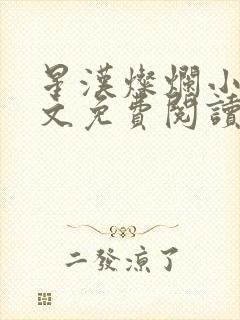 星漢燦爛小
文免費閱讀
二發涼了